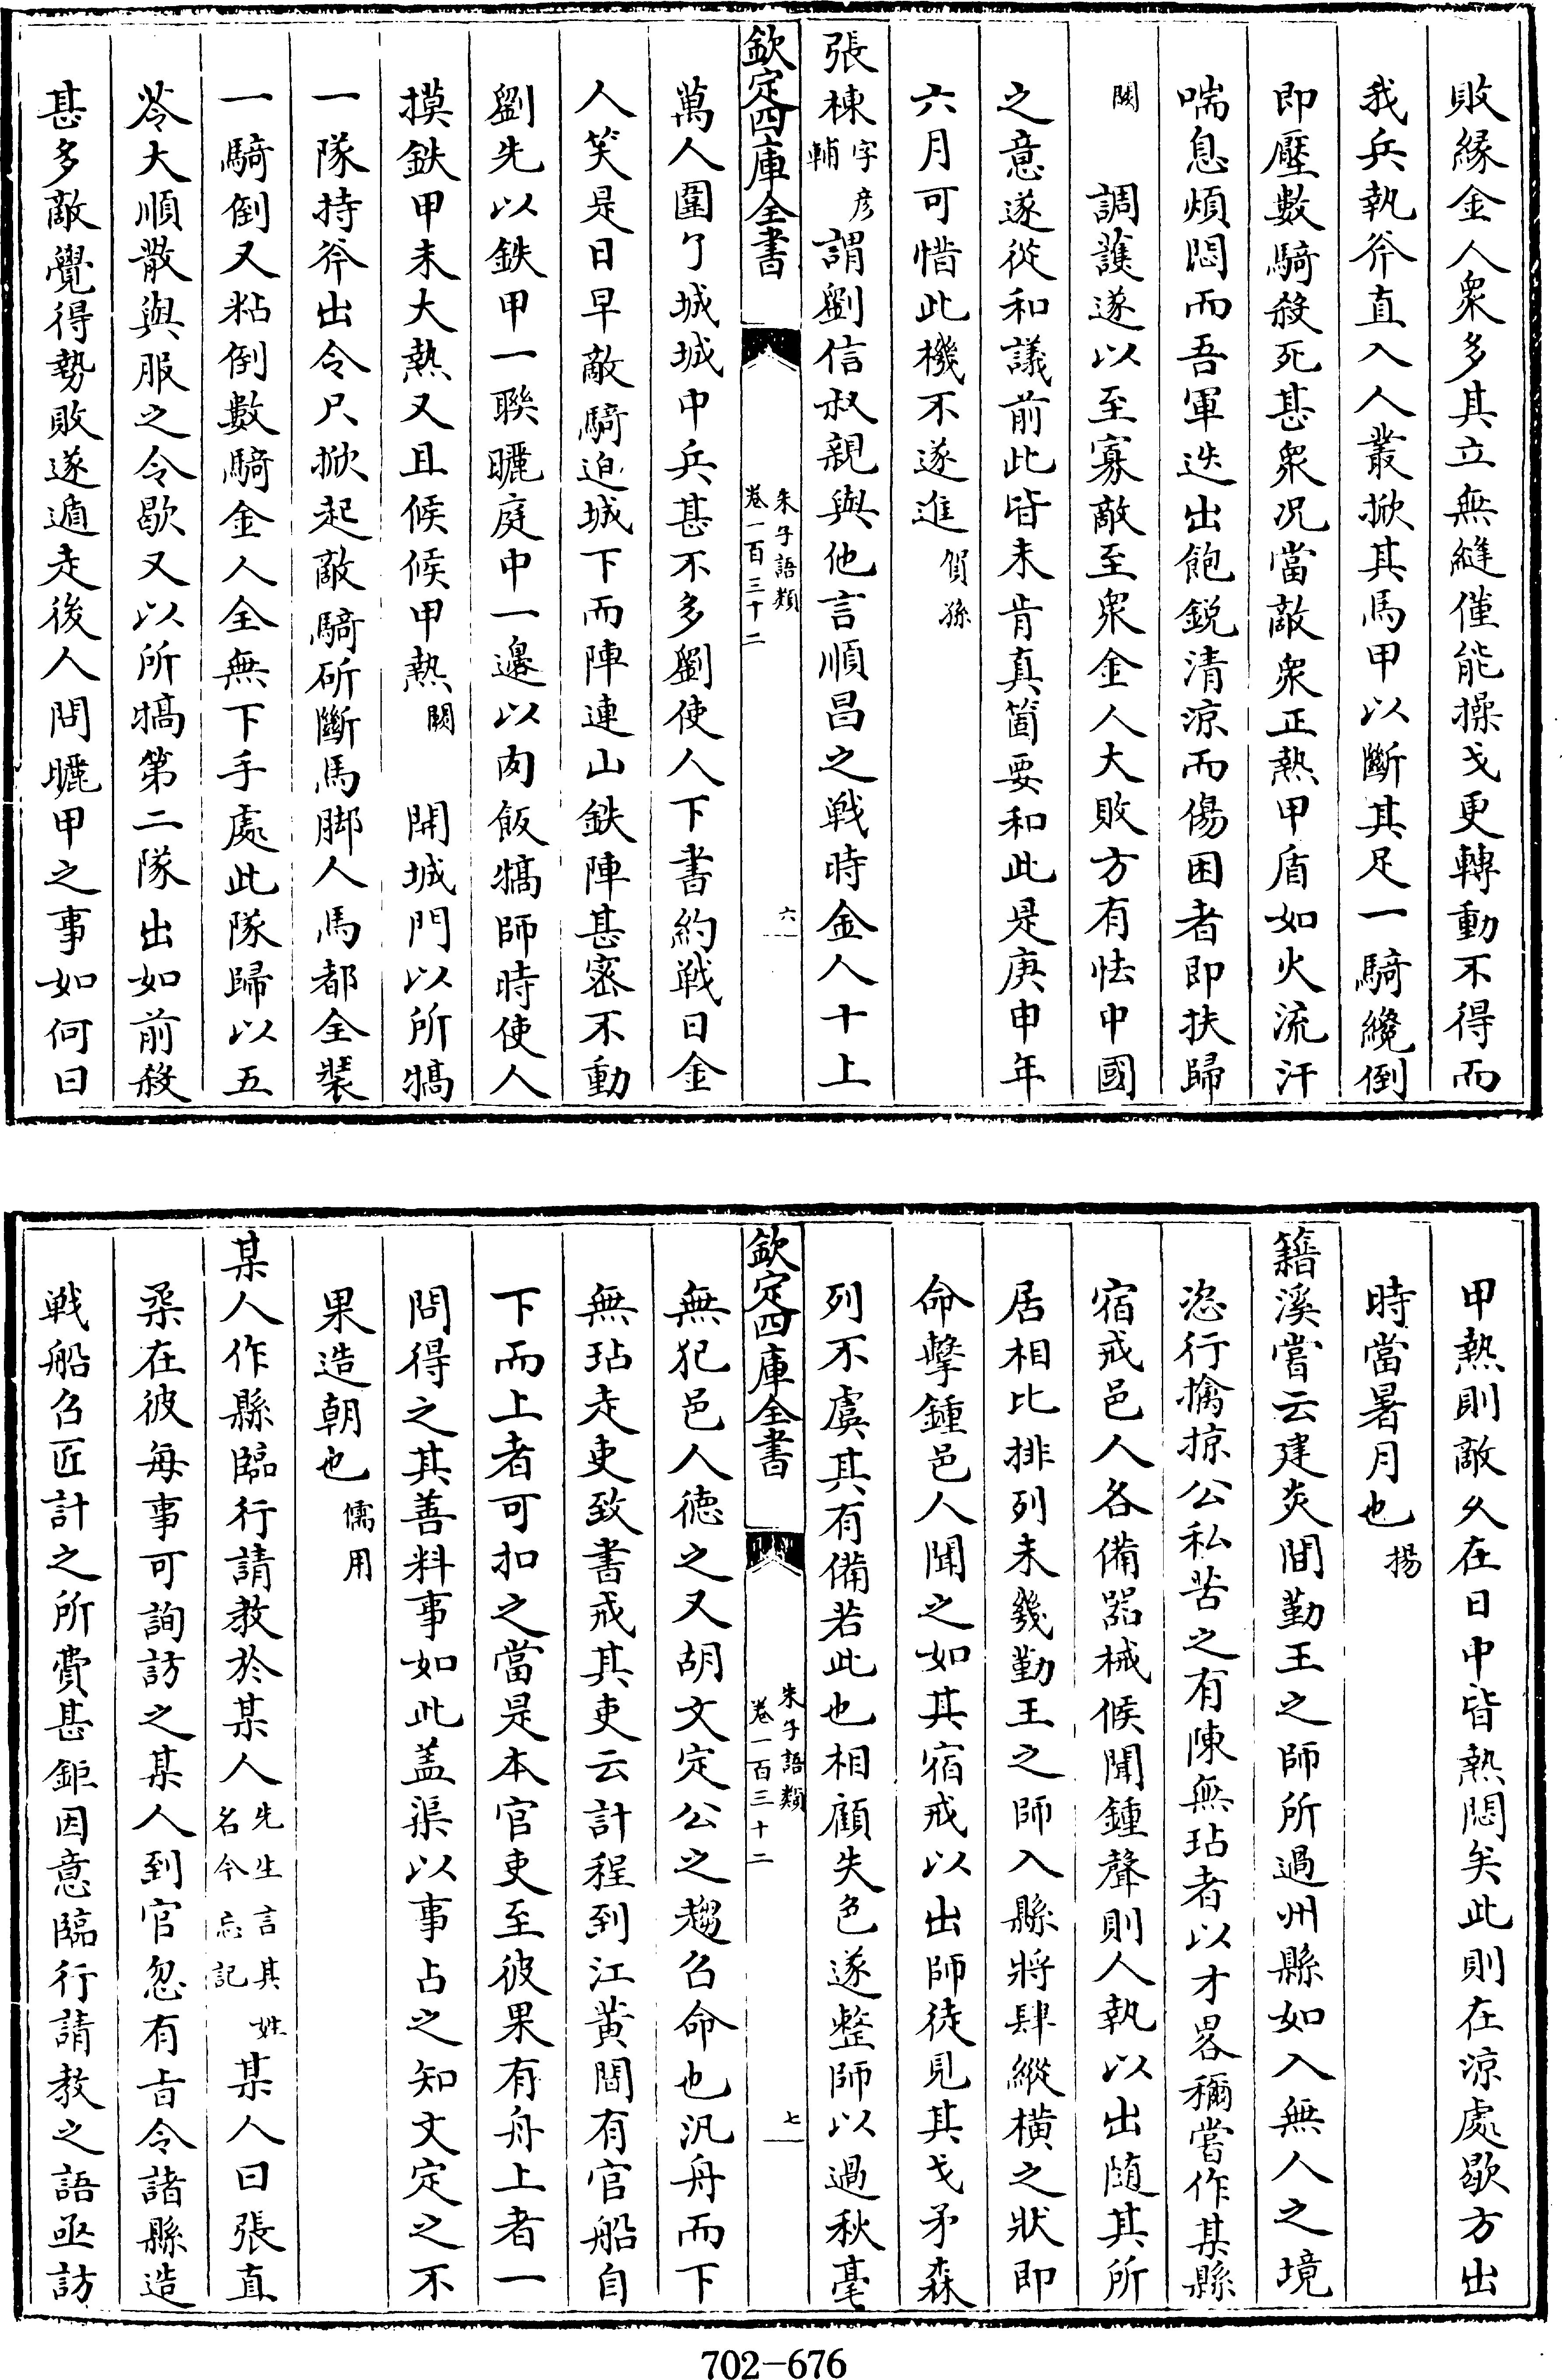 敗緣金人衆多其立無縫僅能操戈更轉動不得而
我兵執斧直入人叢掀其馬甲以斷其足一騎纔倒
即壓數騎殺死甚衆况當敵衆正熱甲盾如火流汗
喘息煩悶而吾軍迭出飽鋭清涼而傷困者即扶歸
闕 調䕶遂以至寡敵至衆金人大敗方有怯中國
之意遂從和議前此皆未肯真箇要和此是庚申年
六月可惜此機不遂進賀孫
張棟字彦輔謂劉信叔親與他言順昌之戰時金人十上
欽定四庫全書
朱子語類
卷一百三十二
六
萬人圍了城城中兵甚不多劉使人下書約戰日金
人笑是日早敵騎迫城下而陣連山鉄陣甚密不動
劉先以鉄甲一聯曬庭中一邊以肉飯犒師時使人
摸鉄甲未大熱又且候候甲熱闕 開城門以所犒
一隊持斧出令只掀起敵騎斫斷馬脚人馬都全裝
一騎倒又粘倒數騎金人全無下手處此隊歸以五
苓大順散與服之令歇又以所犒第二隊出如前殺
甚多敵覺得勢敗遂遁走後人問曬甲之事如何曰
甲熱則敵乆在日中皆熱悶矣此則在涼處歇方出
時當暑月也揚
籍溪嘗云建炎間勤王之師所過州縣如入無人之境
恣行擒掠公私苦之有陳無玷者以才畧稱嘗作某縣
宿戒邑人各備器械候聞鍾聲則人執以出随其所
居相比排列未幾勤王之師入縣將肆縱橫之狀即
命擊鍾邑人聞之如其宿戒以出師徒見其戈矛森
列不虞其有備若此也相顧失色遂整師以過秋毫
欽定四庫全書
朱子語類
卷一百三十二
七
無犯邑人德之又胡文定公之趨召命也汎舟而下
無玷走吏致書戒其吏云計程到江黄間有官船自
下而上者可扣之當是本官吏至彼果有舟上者一
問得之其善料事如此盖渠以事占之知文定之不
果造朝也儒用
某人作縣臨行請教於某人先生言其姓名今忘記某人曰張直
柔在彼每事可詢訪之某人到官忽有㫖令諸縣造
戰船召匠計之所費甚鉅因意臨行請教之語亟訪
702-676